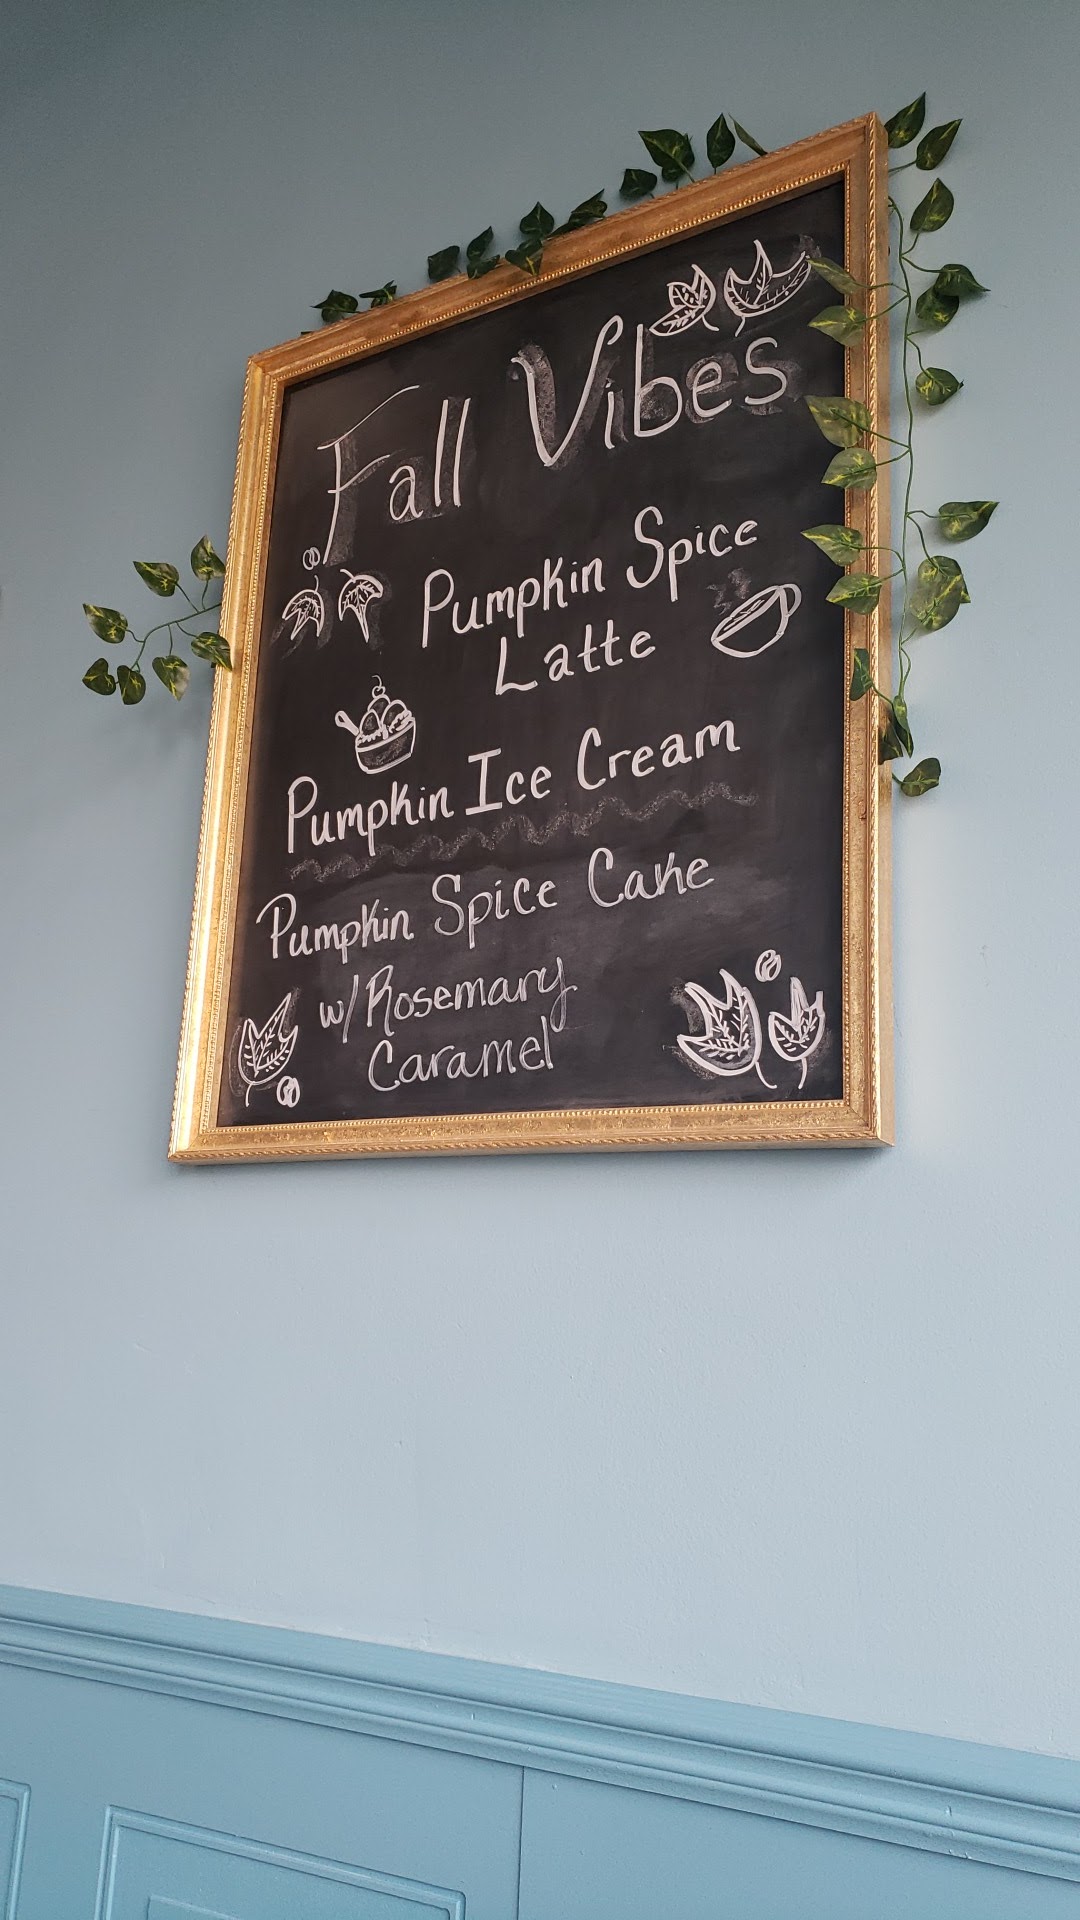 Fall Vibes
Pumpkin Spice
Latte
Pumpkin Ice Cream
Pumpkin Spice Cake
w/Rosemary
Caramel